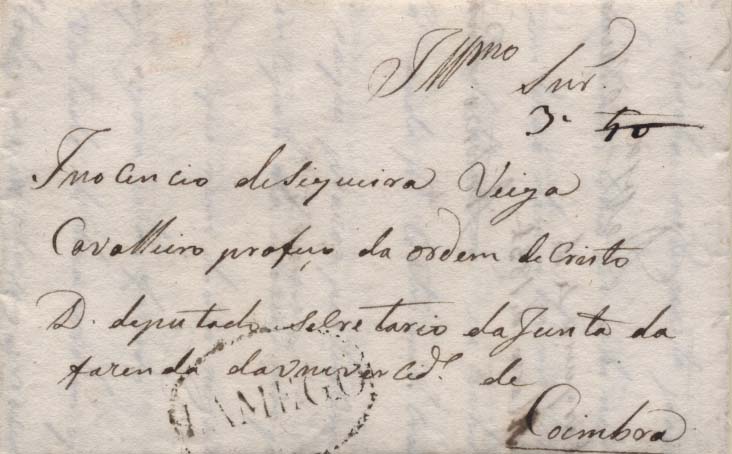 Illmo. Snr.
3. 40
Inocencio de Siqueira Veiga
Cavalleiro profeço da ordem de Cristo
D. deputado secretario da Junta da
fazenda da univercid.e de
LAMEGO
Coimbra